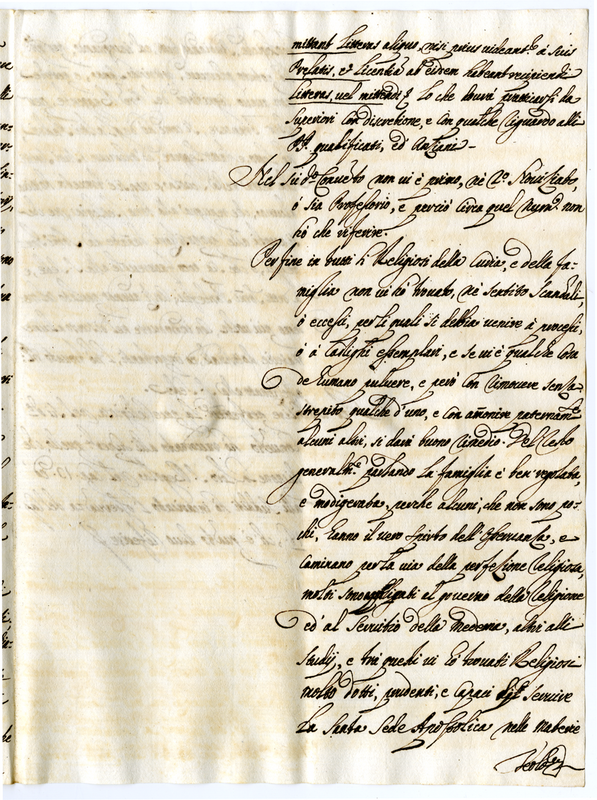 mittant litteras aliquas, nisi prius videantr. à suis
Prelatis, et licentiã ab eisdem habeant recipiendi
litteras, vel mittendi. Lo che dovrà praticarsi da
Superiori con discretione, e con qualche riguardo alli
PP. qualificati, ed' Antiani.
Nel sud.o Convẽto non vi è primo, nè 2.o Novitiato,
ò sia Professorio, e perciò circa quel non
hò che riferire.
Per fine in tutti li Religiosi della Curia, e della fa-
miglia non vi hò trovato, nè sentito scandali,
ò eccessi, per li quali si debbia venire à processi,
ò à castighi essemplari, e se vi è qualche cosa
de humano pulvere, e però con rimovere senza
strepito qualche d'uno, e con amonire paternamte.
alcuni altri, si darà buono rimedio. Del resto
generalmte. parlando la famiglia è ben regolata,
e morigerata, perche alcuni, che non sono po-
chi, hanno il vero spirito dell'Osservanza, e
caminano per la via della perfezione Religiosa,
molti sono applicati al governo della Religione
ed' al servitio della medema, altri alli
studij, e trà quali vi hò trovati Religiosi
molto dotti, prudenti, e capaci di servire
la Santa Sede Apostolica nelle materie